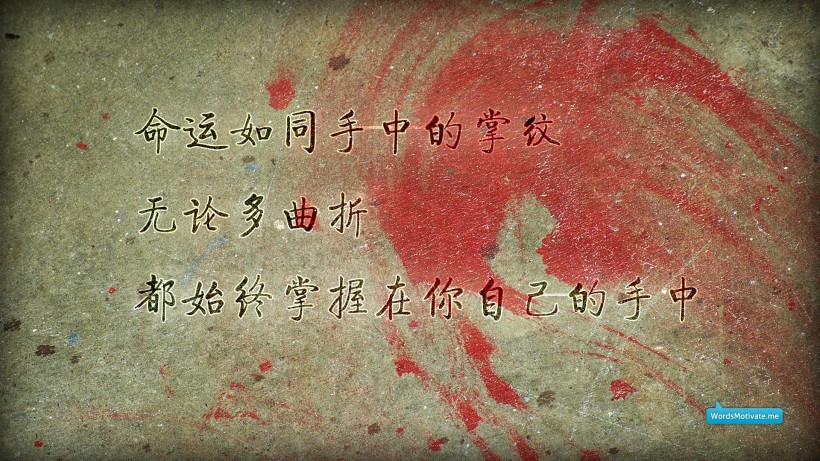 命运如同手中的掌纹
无论多曲折
都始终掌握在你自己的手中
WordsMotivate.me